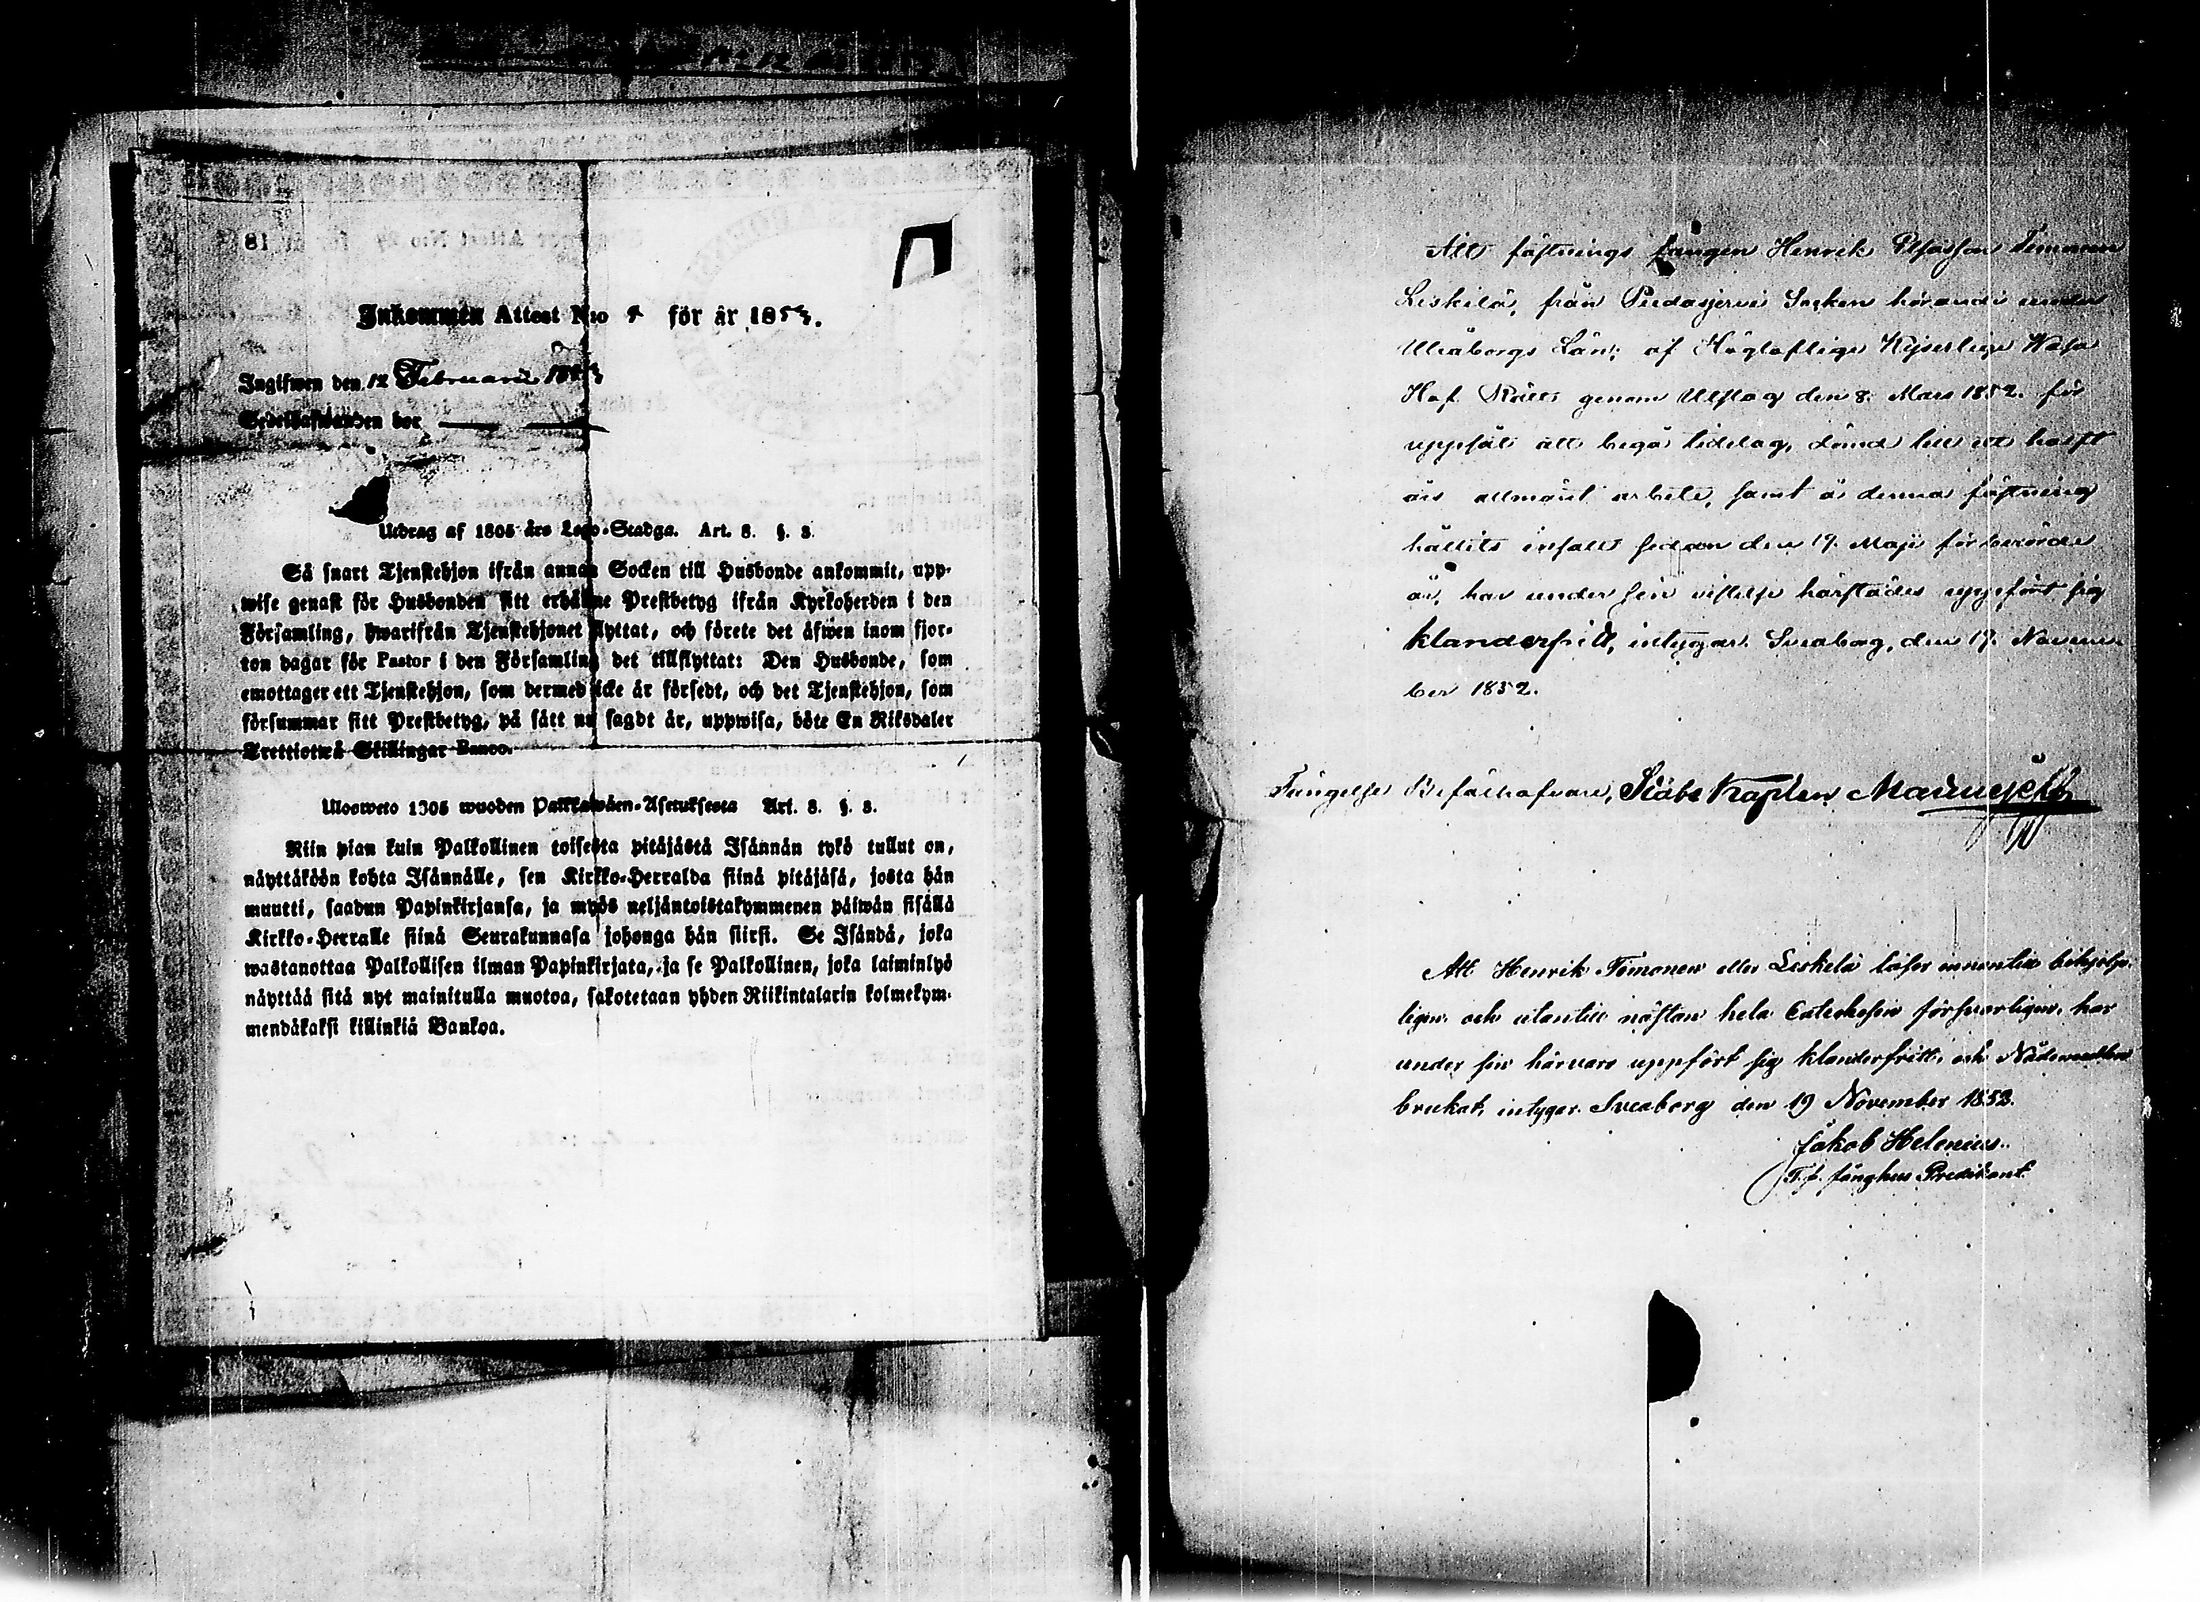 Inkommen Attest N:o 4 för år 1853.
Ingifwen den 12 Februarii 1853
Sedelhafwanden bor
Utdrag af 1805 års Lego-Stadga. Art. 8. §. 3.
Så snart Tjenstehjon ifrån annan Socken till Husbonde ankommit, upp-
wise genast för Husbonden sitt erhållne Prestbetyg ifrån Kyrkoherden i den
Församling, hwarifrån Tjenstehjonet flyttat, och förete det äfwen inom fjor-
ton dagar för Pastor i den Församling det tillflyttat: Den Husbonde, som
emottager ett Tjenstehjon, som dermed icke är försedt, och det Tjenstehjon, som
försummar sitt Prestbetyg, på sätt nu sagdt är, uppwisa, böte En Riksdaler
Trettiotwå Skillingar Banco.
Ulosweto 1805 wuoden Palkkawäen-Asetuksesta Art. 8. §. 3.
Niin pian kuin Palkollinen toisesta pitäjästä Isännän tykö tullut on,
näyttäköön kohta Isännälle, sen Kirkko-Herralda siinä pitäjäsä, josta hän
muutti, saadun Papinkirjansa, ja myös neljäntoistakymmenen päiwän sisällä
Kirkko-Herralle siinä Seurakunnasa johonga hän siirsi. Se Isändä, joka
wastanottaa Palkollisen ilman Papinkirjata, ja se Palkollinen, joka laiminlyö
näyttää sitä nyt mainitulla muotoa, sakotetaan yhden Riikintalarin kolmekym-
mendäkaksi killinkiä Bankoa.
Att fästnings fången Henrik Timonen
Leskelä, från Pudasjervi Socken hörande under
Uleåborgs Län; af Högloflige Kejserlige Wasa
Hof Rätt genom Utslag den 8. Mars 1852. för
uppsåt att begå tidelag, dömd till ett halft
års allmänt arbete, samt å denna fästning
hållits infatt sedan den 19. Maji förberörde
år, har under sin vistelse härstädes uppfört sig
klanderfritt, intygar. Sveaborg, den 19. Novem-
ber 1852.
Fängelse Befälhafvare, Stabs Kapten
Att Henrik Timonen eller Leskelä läser innantill behjelpe-
ligen och utantill nästan hela Catechesen försvarligen, har
under sin härvaro uppfört sig klanderfritt, och Nådemedlen
brukat, intygar. Sveaborg den 19 November 1852.
Jakob Helenius.
T.f. fånghus Predikant.